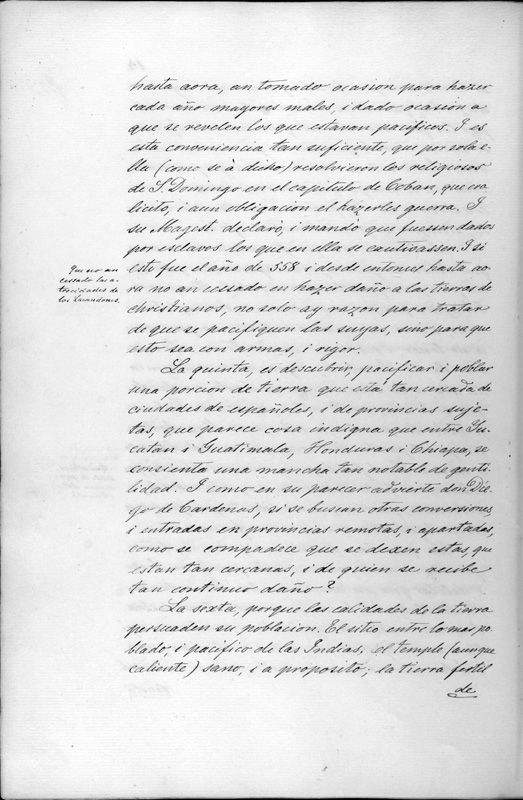 hasta aora, an tomado ocasion para hazer
cada año mayores males, i dado ocasion a
que se revelen los que estavan pacificos. I es
esta conveniencia tan suficiente, que por sola e-
lla (como se à dicho) resolvieron los religiosos
de S. Domingo en el capitulo de Coban, que era
licito, i aun obligacion el hazerles guerra. I
su Magest. declarò, i mandò que fuessen dados
por esclavos los que en ella se cautivassen. I si
Que no an
cessado las a-
trocidades de
los Lacandones.
esto fue el año de 558 i desde entonces hasta ao-
ra no an cessado en hazer daño a las tierras de
christianos, no solo ay razon para tratar
de que se pacifiquen las suyas, sino para que
esto sea con armas, i rigor.
La quinta, es descubrir, pacificar i poblar
una porcion de tierra que està tan cercada de
ciudades de españoles, i de provincias suje-
tas, que parece cosa indigna que entre Yu-
catan i Guatimala, Honduras i Chiapa, se
consienta una mancha tan notable de genti-
lidad. I como en su parecer advierte don Die-
go de Cardenas, si se buscan otras conversiones
i entradas en provincias remotas, i apartadas,
como se compadece que se dexen estas, que
estan tan cercanas, i de quien se recibe
tan continuo daño?
La sexta, porque las calidades de la tierra
persuaden su poblacion. El sitio entre lo mas po-
blado, i pacifico de las Indias, el temple (aunque
caliente) sano, i a proposito; la tierra fertil
de